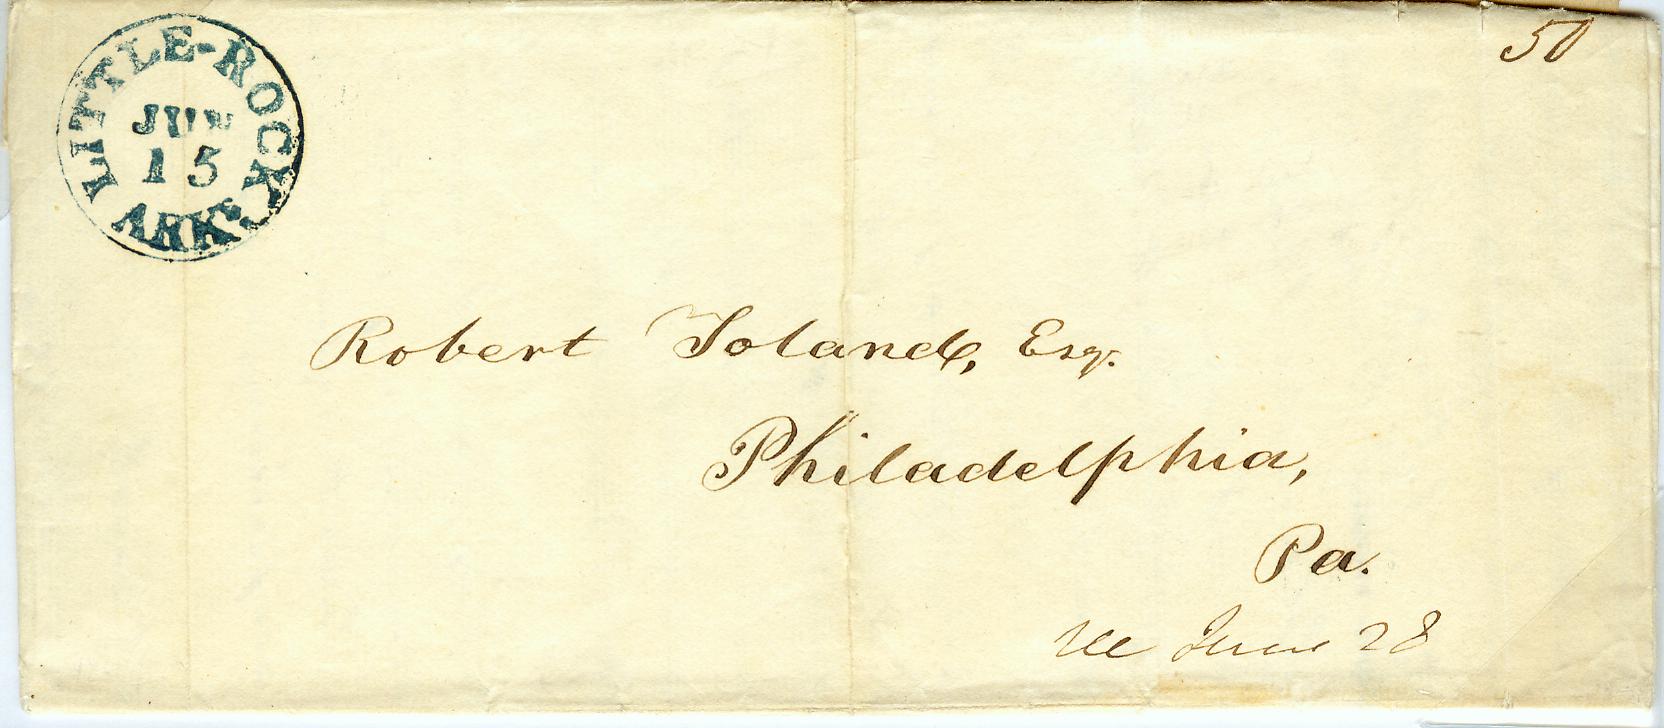 LITTLE-ROCK
JUN
15
ARK.
50
Robert Toland, Esqr.
Philadelphia,
Pa.
June 28